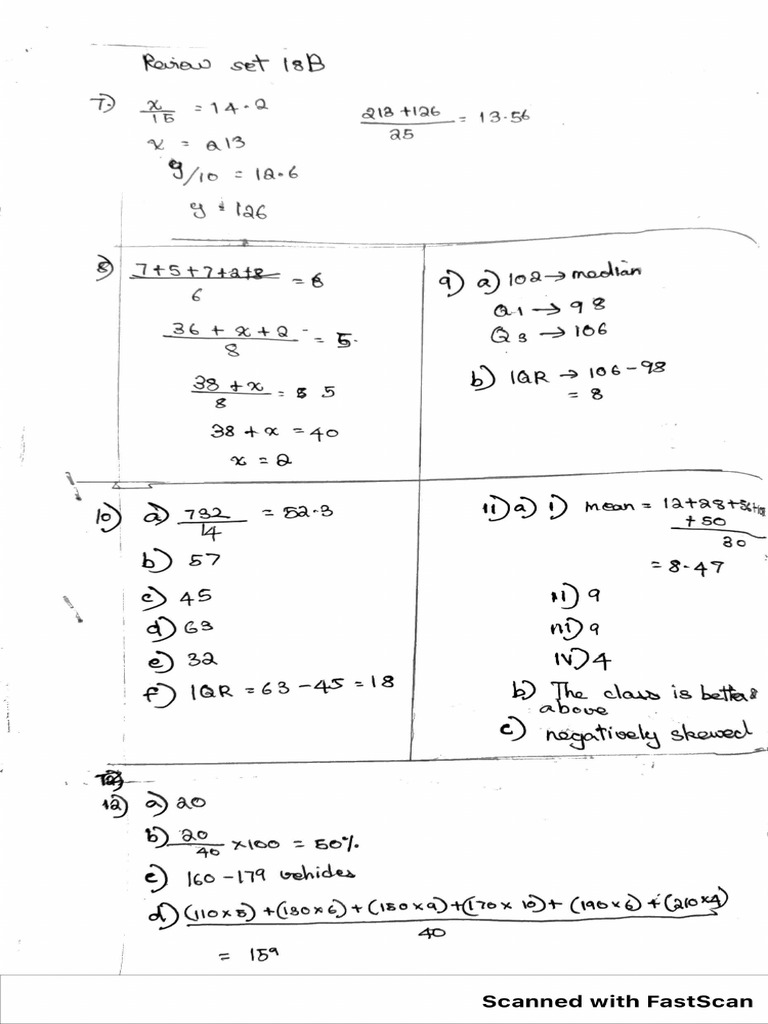 Review set 18B
7) x/15 = 14.2
x = 213
y/10 = 12.6
y = 126
(213 + 126)/25 = 13.56
8) (7+5+7+2+8)/6 = 6
(36 + x + 2)/8 = 5.
(38 + x)/8 = 5
38 + x = 40
x = 2
9) a) 102 → median
Q1 → 98
Q3 → 106
b) IQR → 106 - 98
= 8
10) a) 732/14 = 52.3
b) 57
c) 45
d) 63
e) 32
f) IQR = 63 - 45 = 18
11) a) i) mean = 12+28+56+108
+50
30
= 8.47
ii) 9
iii) 9
iv) 4
b) The class is better
above
c) negatively skewed
12) a) 20
b) 20/40 × 100 = 50%
c) 160 - 179 vehicles
d) (110×5) + (130×6) + (150×9) + (170×10) + (190×6) + (210×4)
40
= 159
Scanned with FastScan